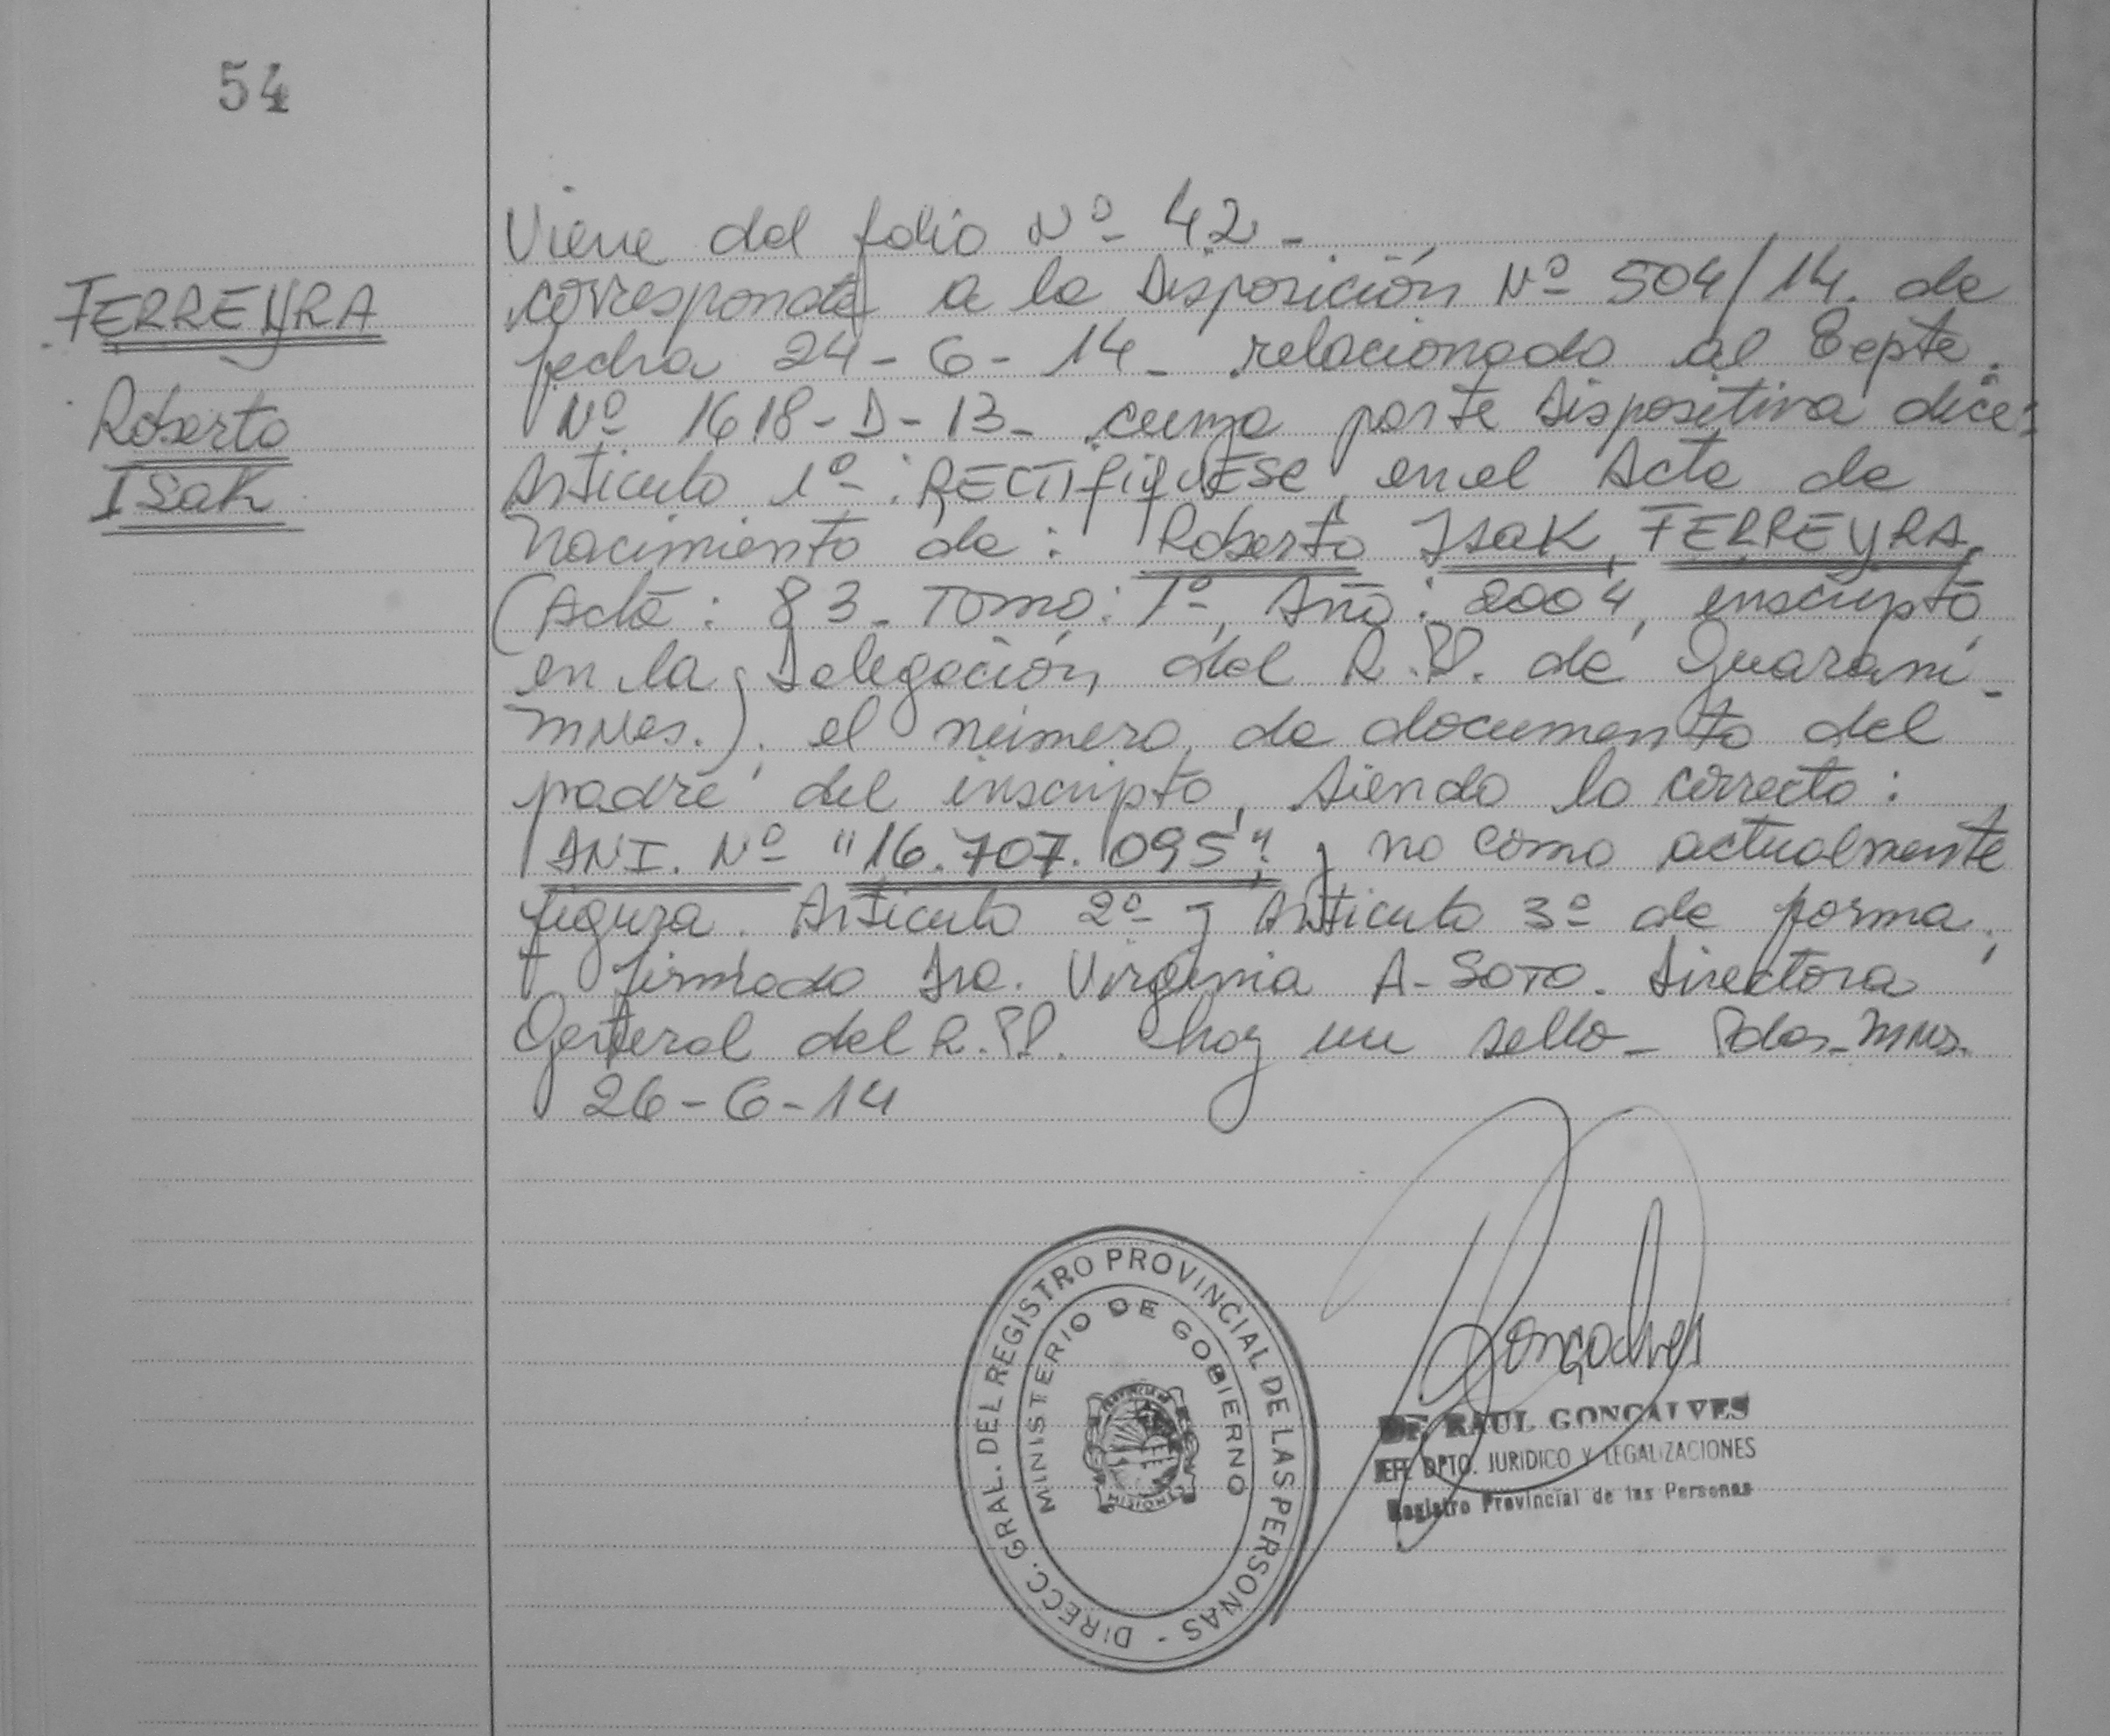 54
FERREYRA
Roberto
Isak
Viene del folio Nº 42-
corresponde a la Disposición Nº 504/14. de
fecha 24-6-14- relacionado al Expte.
Nº 1618-D-13- cuya parte dispositiva dice:
Articulo 1º: RECTIFIQUESE en el Acta de
Nacimiento de: Roberto Isak FERREYRA,
(Acta: 83- Tomo: 1º, Año: 2004, inscripto
en la Delegación del R.PP. de Guaraní-
Mnes.). el número de documento del
padre del inscripto, siendo lo correcto:
DNI. Nº "16.707.095" y no como actualmente
figura. Articulo 2º y Articulo 3º de forma,
firmado Dra. Virginia A- SOTO. Directora
General del R.PP. hay un sello- Pdas-Mnes.
26-6-14
DIRECC. GRAL. DEL REGISTRO PROVINCIAL DE LAS PERSONAS -
MINISTERIO DE GOBIERNO
PROVINCIA DE
MISIONES
Goncalves
Dr. RAUL GONCALVES
JEFE DPTO. JURIDICO Y LEGALIZACIONES
Registro Provincial de las Personas